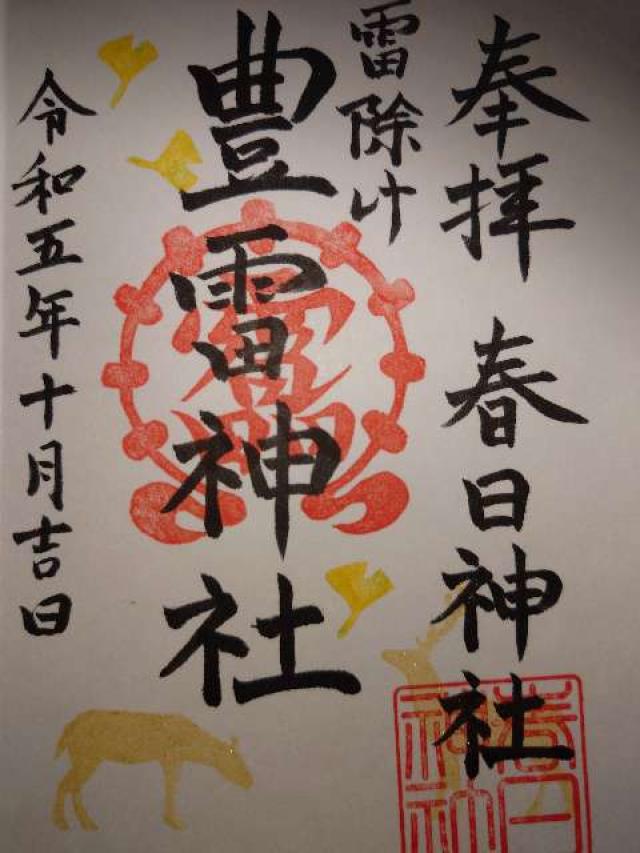 奉拝 春日神社
雷除け
豊雷神社
令和五年十月吉日
春日
神社